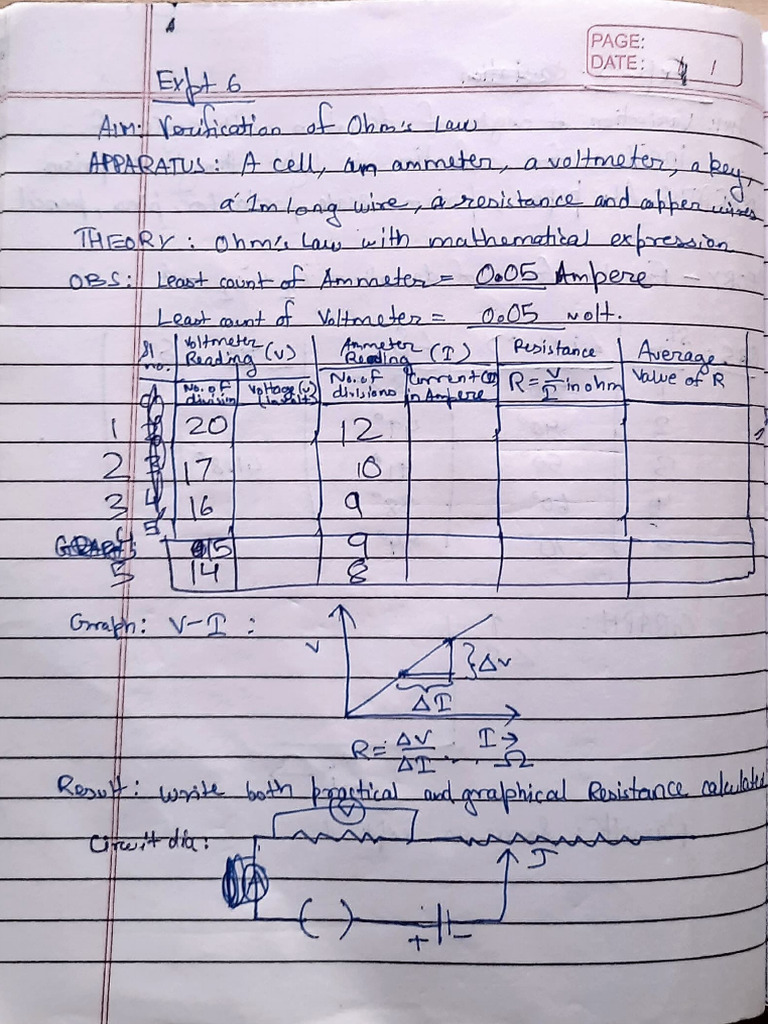 PAGE:
DATE: 1
Expt 6
AIM: Verification of Ohm's Law
APPARATUS: A cell, an ammeter, a voltmeter, a key,
a 1m long wire, a resistance and copper wires
THEORY: Ohm's Law with mathematical expression
OBS: Least count of Ammeter = 0.05 Ampere
Least count of Voltmeter = 0.05 volt.
Sl no. Voltmeter Reading (V) Ammeter Reading (I) Resistance Average
No. of division Voltage (V) (in volts) No. of divisions Current (I) in Ampere R = V/I in ohm Value of R
1 20 12
2 17 10
3 16 9
15 9
5 14 8
Graph: V-I :
V
ΔV
ΔI
R = ΔV/ΔI ... Ω I →
Result: write both practical and graphical Resistance calculated
V
Circuit dia:
J
A
( )
+ -